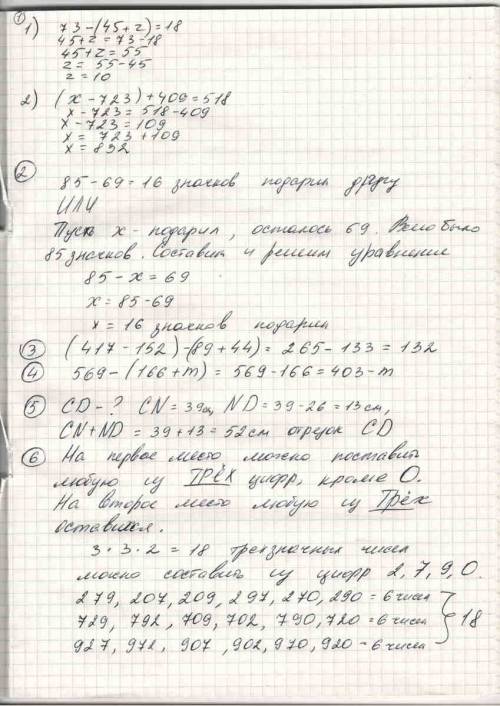 ①
1) 73-(45+z)=18
45+z=73-18
45+z=55
z=55-45
z=10
2) (x-723)+409=518
x-723=518-409
x-723=109
x=723+109
x=832
②
85-69=16 значков подарил другу
ИЛИ
Пусть x- подарил, осталось 69. Всего было
85 значков. Составим и решим уравнение
85-x=69
x=85-69
x=16 значков подарил
③ (417-152)-(89+44)=265-133=132
④ 569-(166+m)=569-166=403-m
⑤ CD-? CN=39см, ND=39-26=13см,
CN+ND=39+13=52см отрезок CD
⑥ На первое место можно поставить
любую из ТРЁХ цифр, кроме 0.
На второе место любую из Трёх
оставшихся.
3·3·2=18 трехзначных чисел
можно составить из цифр 2,7,9,0.
279, 207, 209, 297, 270, 290 = 6 чисел
729, 792, 709, 702, 790, 720 = 6 чисел } 18
927, 972, 907, 902, 970, 920 = 6 чисел